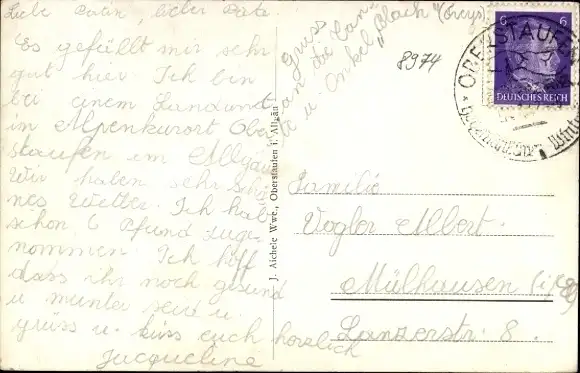 Liebe Patin, lieber Pate.
Es gefällt mir sehr
gut hier. Ich bin
bei einem Landwirt
im Alpenkurort Ober
staufen im Allgäu
Wir haben sehr schö
nes Wetter. Ich habe
schon 6 Pfund zuge-
nommen. Ich hoff
dass ihr noch gesund
u munter seid u.
grüss u. küss euch herzlich
Jacqueline
Gruss
an die
u. Onkel
8974
6 6
DEUTSCHES REICH
OBERSTAUFEN
J. Aichele Wwe., Oberstaufen i. Allgäu
Familie
Vogler Albert.
Mülhausen
Lanzerstr. 8.